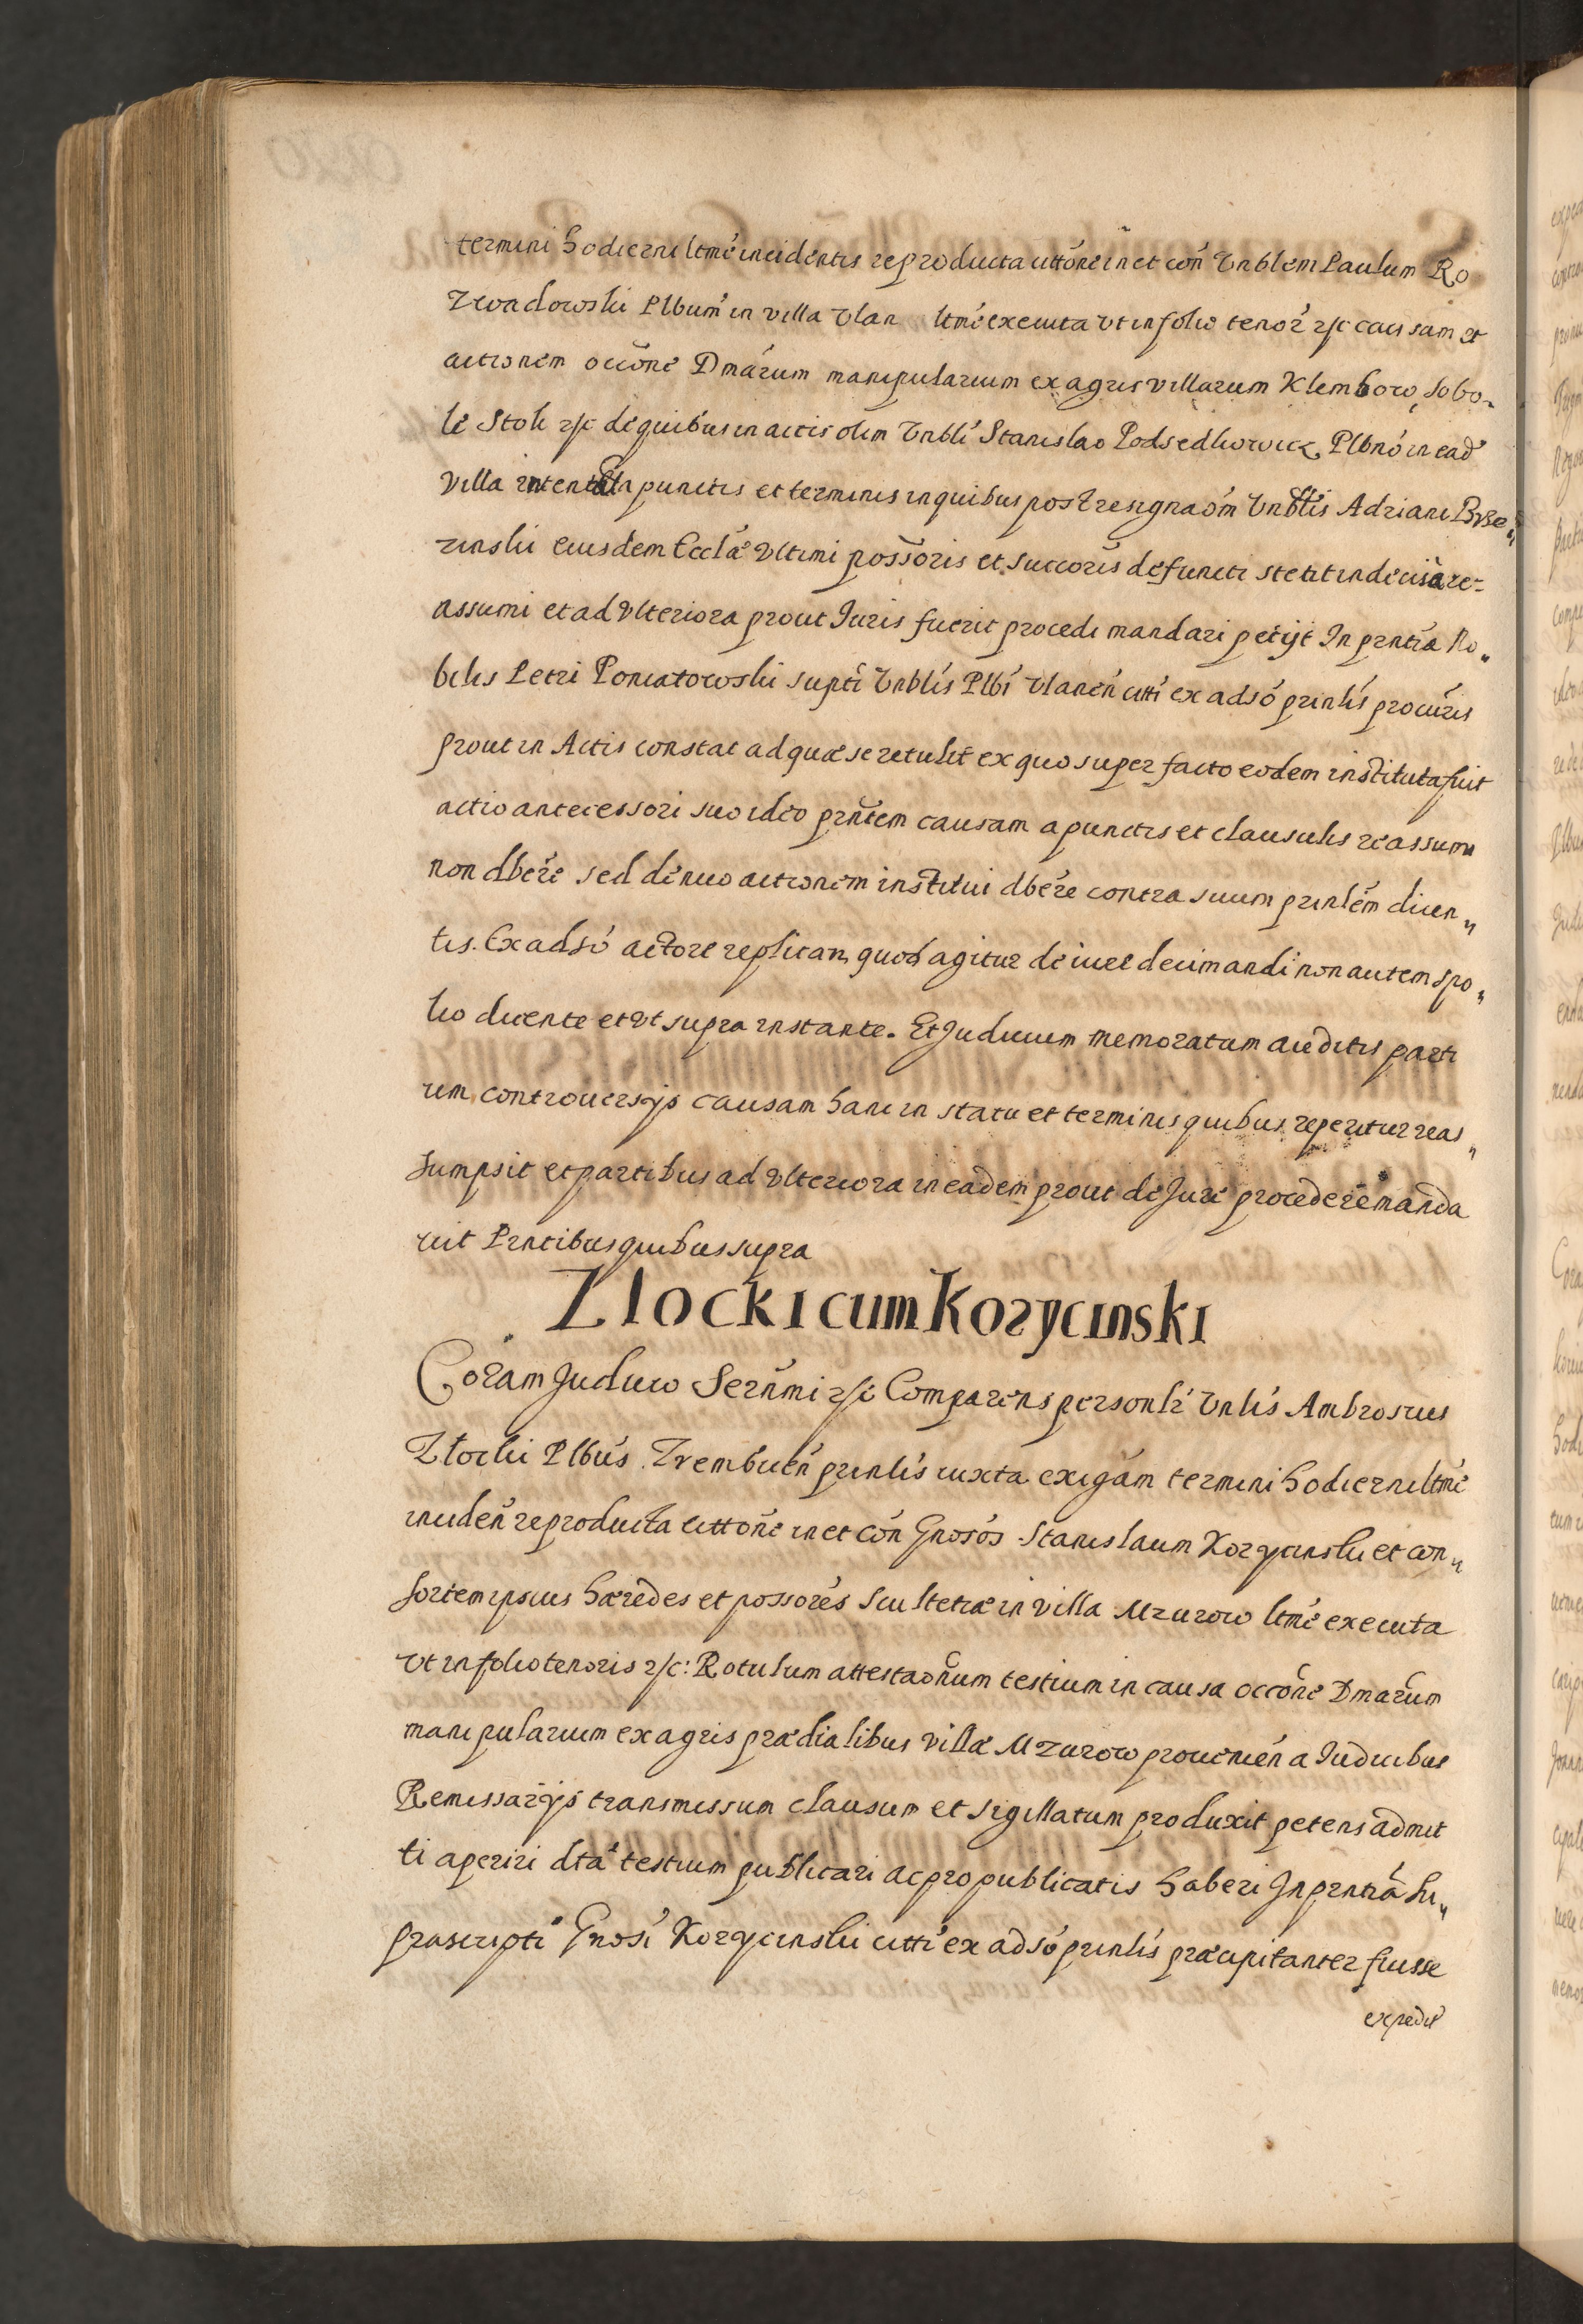 termini hodierni ltme incidentis reproducta cittone in et con Vnblem Paulum Ro
zwadowski Plbum in villa Vlan ltme executa vt in folio tenor etc causam et
actionem occone Dmarum manipularium ex agris villarum Klembow, Sobo-
le Stok etc de quibus in actis olim Vnbli Stanislao Podsedkowicz Plbno in ead
Villa intentata punctis et terminis in quibus post resignaom Vnblis Adriani Brze„
zinski eiusdem Eccla Vltimi possoris et succoris defuncti stetit indecisa re-
assumi et ad Vlteriora prout Iuris fuerit procedi mandari petijt In prntia No„
bilis Petri Poniatowski supti Vnblis Plbi Vlanen citti ex adso prinlis procuris
prout in Actis constat ad quæ se retulit ex quo super facto eodem instituta fuit
actio antecessori suo ideo prntem causam a punctis et clausulis reassumi
non dbere sed denuo actionem institui dbere contra suum prinlem dicen„
tis. Ex adso actore replican quod agitur de iure decimandi non autem spo„
lio dicente et vt supra instante. Et Judicium memoratum auditis parti
um controuersijs causam hanc in statu et terminis quibus reperitur reas„
sumpsit et partibus ad Vlteriora in eadem prout de Jure procedere manda
uit Prntibus quibus supra
Zlocki cum Korycinski
Coram Judicio Sernmi etc Comparens personlr Vnlis Ambrosius
Złocki Plbus Trembicen prinlis iuxta exigam termini hodierni ltme
inciden reproducta cittone in et con Gnosos Stanislaum Korycinski et con„
sortem ipsius hæredes et possores Scultetiæ in villa Mzurow ltme executa
Vt in folio tenoris etc: Rotulum attestaonum testium in causa occone Dmarum
manipularium ex agris prædialibus villæ Mzurow prouenien a Iudicibus
Remissarijs transmissum clausum et sigillatum produxit petens admit
ti aperiri dta testium publicari ac pro publicatis haberi In prntia Su„
prascripti Gnosi Korycinski citti ex adso prinlis præcipitanter fuisse
expedit